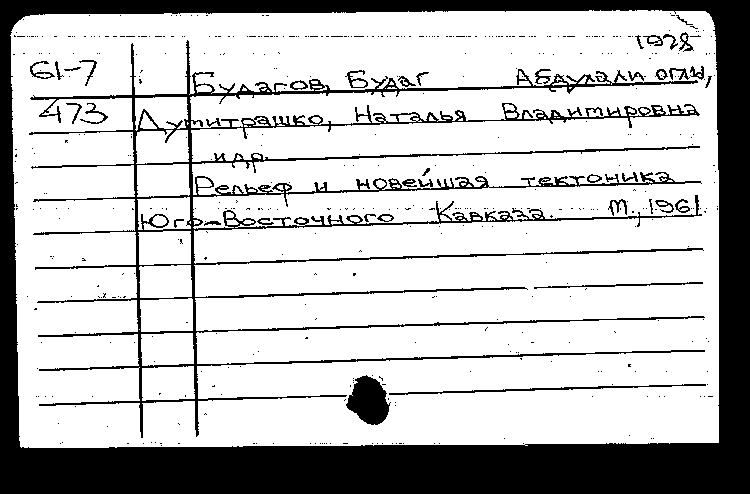 1928
61-7 Будагов, Будаг Абдулали оглы,
473 Думитрашко, Наталья Владимировна
и др.
Рельеф и новейшая тектоника
Юго-Восточного Кавказа. М., 1961